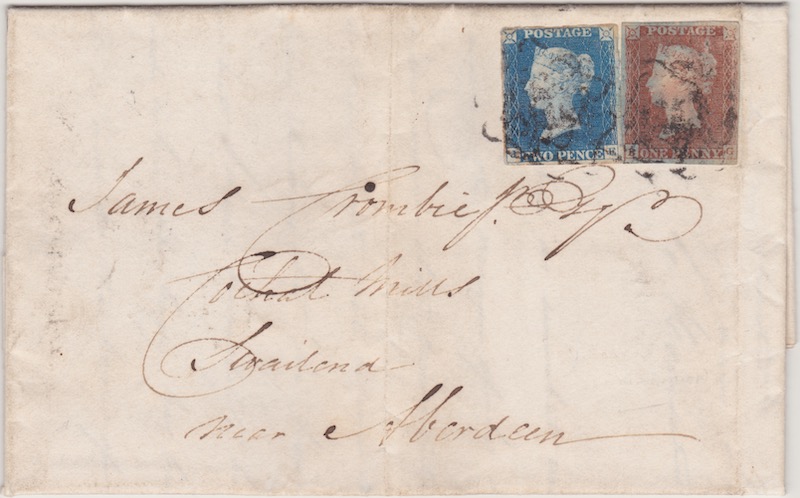 POSTAGE POSTAGE
TWO PENCE ONE PENNY
James Crombie Jr. Esqr
Cothal Mills
Swailend
near Aberdeen